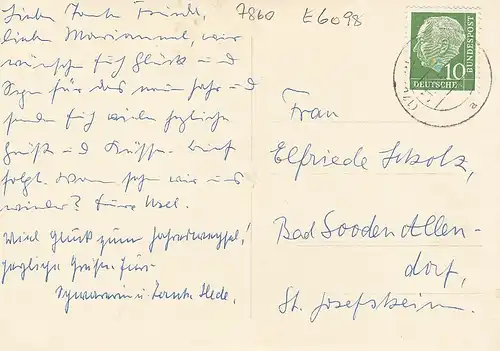 Liebe Tante Friedl,
liebe Marianne, wir
wünschen Euch Glück und
Segen für das neue Jahr und
senden Euch viele herzliche
Grüße und Küsse. Brief
folgt. Wann sehn wir uns
wieder? Eure Usel.
Viel Glück zum Jahreswechsel!
herzliche Grüße Eure
Schwägerin u. Tante Hede.
7860 E6098
10
DEUTSCHE
BUNDESPOST
a
Frau
Elfriede Scholz,
Bad Sooden Allen-
dorf,
St. Josefsheim.